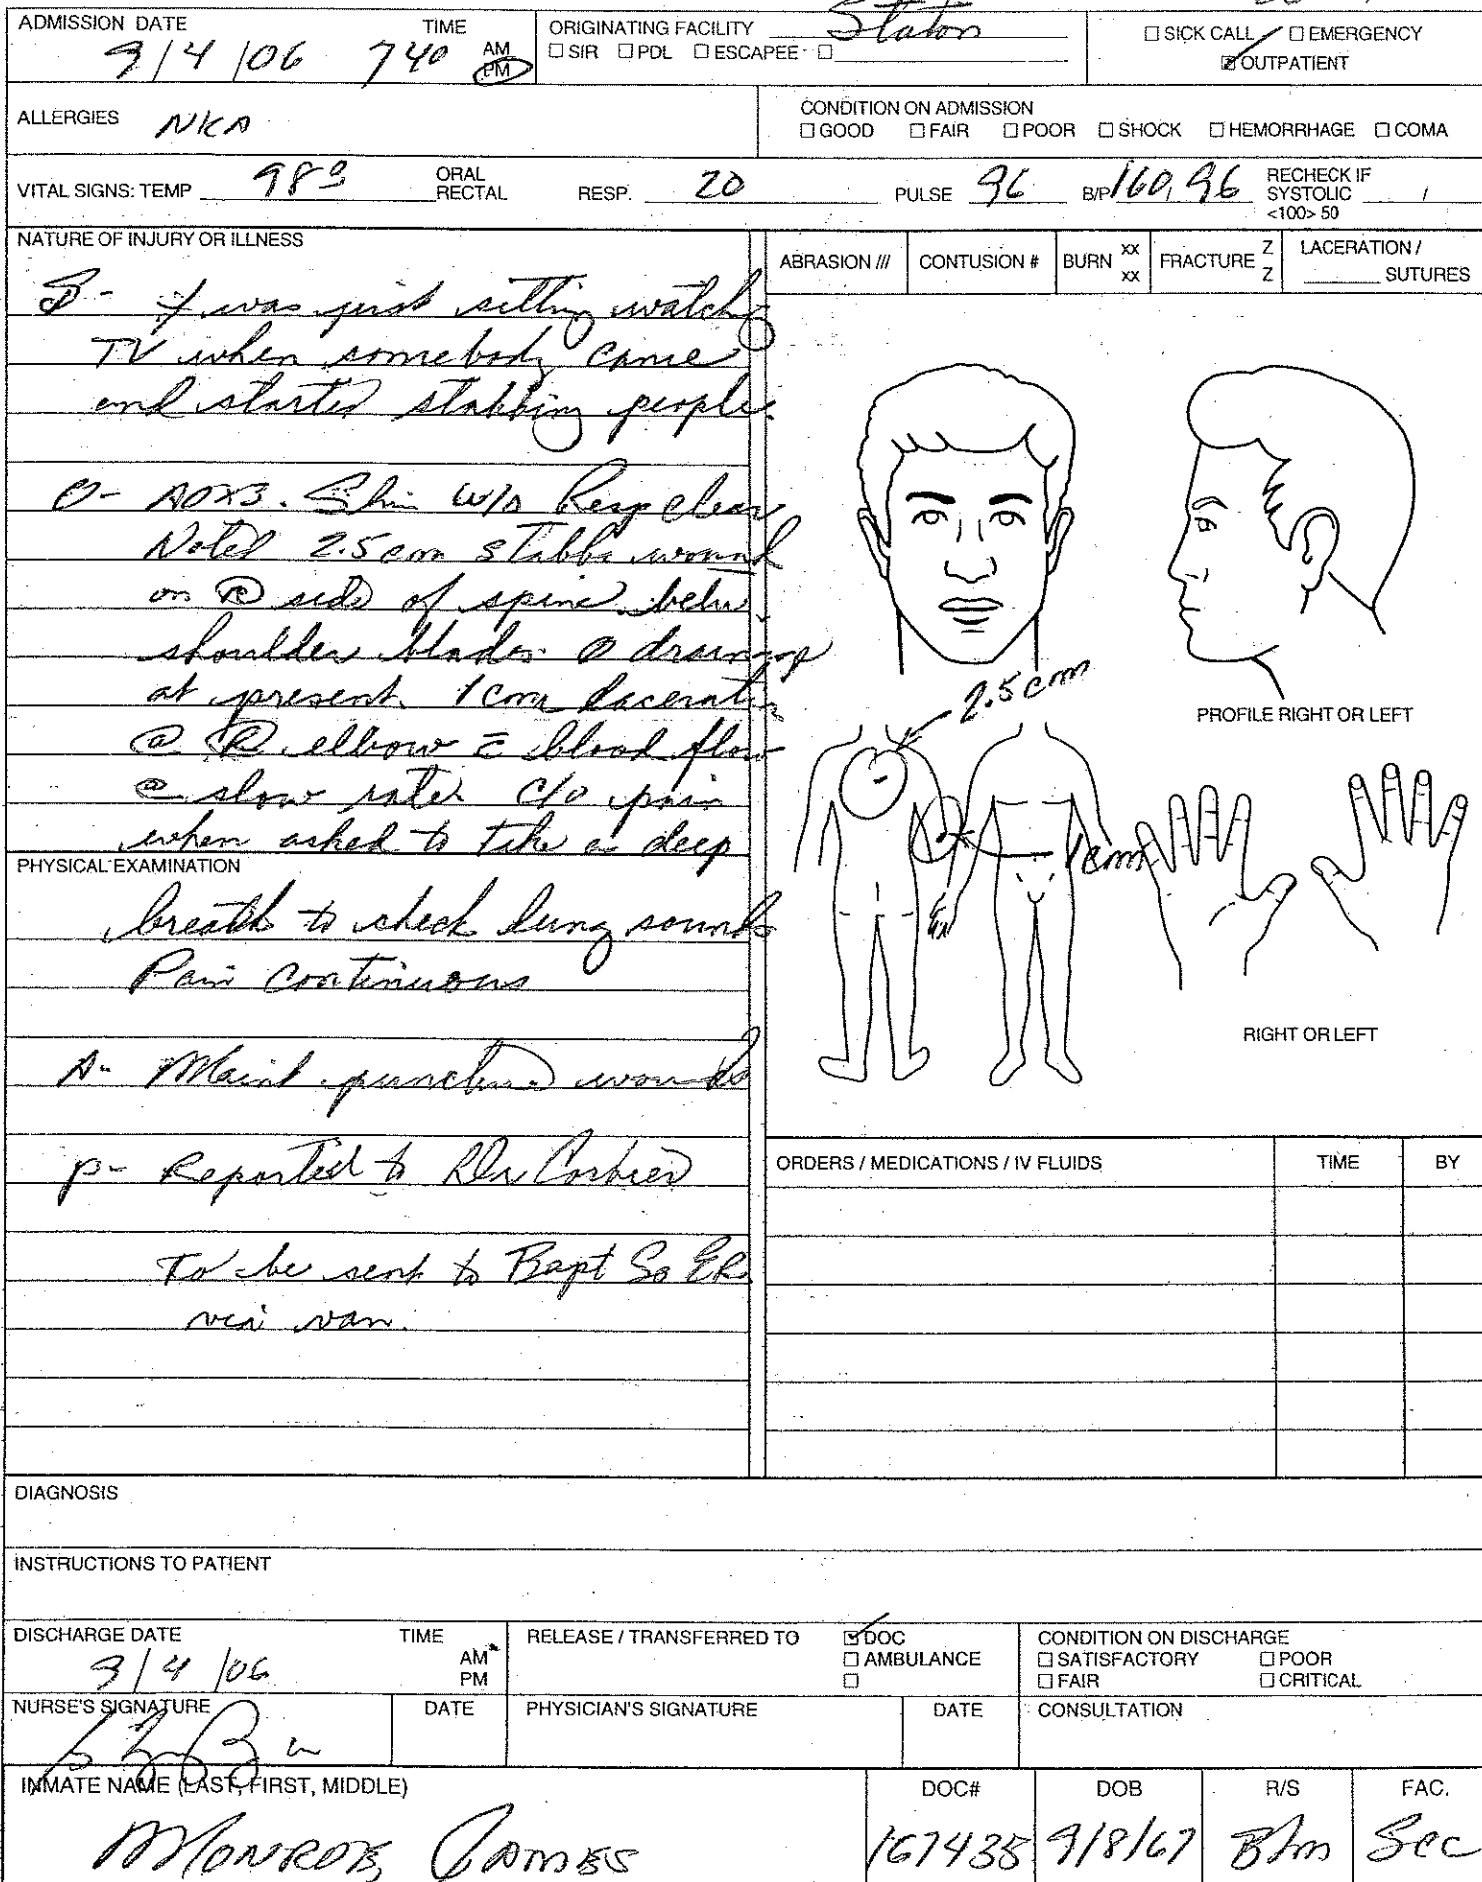 ADMISSION DATE TIME ORIGINATING FACILITY Staton
9/4/06 740 AM PM □ SIR □ PDL □ ESCAPEE □
□ SICK CALL □ EMERGENCY
☑ OUTPATIENT
ALLERGIES NKA
CONDITION ON ADMISSION
□ GOOD □ FAIR □ POOR □ SHOCK □ HEMORRHAGE □ COMA
VITAL SIGNS: TEMP 98⁹ ORAL RECTAL RESP. 20 PULSE 96 B/P 160, 96 RECHECK IF SYSTOLIC <100> 50 /
NATURE OF INJURY OR ILLNESS
S- I was just sitting watching
TV when somebody came
and started stabbing people.
O- AOX3. Skin W/D Resp clear
Noted 2.5 cm stabb wound
on Ⓡ side of spine below
shoulder blades. 0 drainage
at present. 1 cm laceration
@ Ⓡ elbow c̄ blood flow
@ slow rate. C/o pain
when asked to take a deep
PHYSICAL EXAMINATION
breath to check lung sounds
Pain continuous
A- puncture wounds
P- Reported to Dr Corbier
To be sent to Bapt So ER
via van.
ABRASION /// CONTUSION # BURN xx xx FRACTURE Z Z LACERATION / ____ SUTURES
2.5 cm
PROFILE RIGHT OR LEFT
1 cm
RIGHT OR LEFT
ORDERS / MEDICATIONS / IV FLUIDS TIME BY
DIAGNOSIS
INSTRUCTIONS TO PATIENT
DISCHARGE DATE TIME
9/4/06 AM PM
RELEASE / TRANSFERRED TO ☑ DOC
□ AMBULANCE
□
CONDITION ON DISCHARGE
□ SATISFACTORY □ POOR
□ FAIR □ CRITICAL
NURSE'S SIGNATURE DATE PHYSICIAN'S SIGNATURE DATE CONSULTATION
INMATE NAME (LAST, FIRST, MIDDLE) DOC# DOB R/S FAC.
MONROE, JAMES 167435 9/8/67 B/m Sec